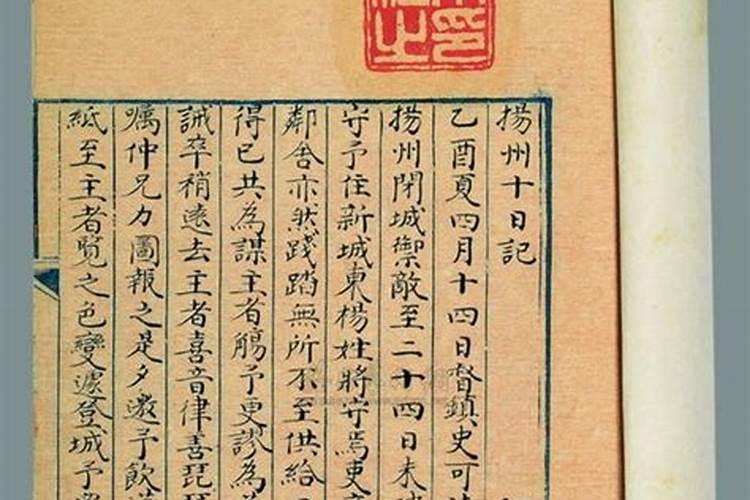 揚州十日記
乙酉夏四月十四日督鎮史可
揚州閉城禦敵至二十四日未
守予住新城東楊姓將守焉吏
鄰舍亦然踐踏無所不至供給
得已共為謀主者觴予更謬為
誠卒稍遠去主者喜音律善琵琶
囑仲兄力圖報之是夕邀予飲
紙至主者覽之色變遽登城予